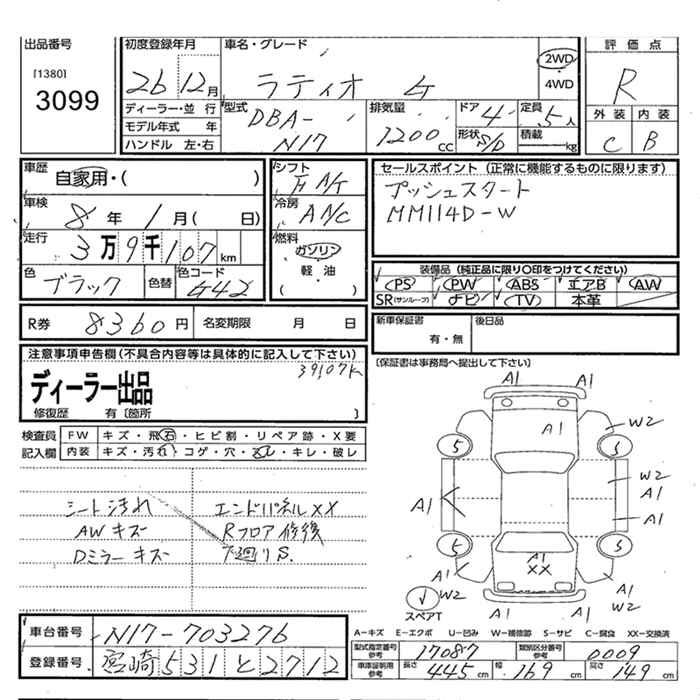 出品番号
[1380]
3099
初度登録年月
26 12月
ディーラー・並行
モデル年式 年
ハンドル 左・右
車名・グレード
ラティオ G
2WD
4WD
型式
DBA-
N17
排気量
1200cc
ドア 4
形状 S/D
定員 5人
積載 kg
評価点
R
外装 内装
C B
車歴
自家用・( )
車検
8年 1月( 日)
走行
3万9千107km
色
ブラック
色替
色コード
G42
シフト
F A/T
冷房
A/C
燃料
ガソリン
軽・油
( )
セールスポイント(正常に機能するものに限ります)
プッシュスタート
MM114D-W
装備品(純正品に限り〇印をつけてください)
PS PW ABS エアB AW
SR(サンルーフ) ナビ TV 本革
R券 8360円 名変期限 月 日
新車保証書
有・無
後日品
[保証書は事務局へ提出して下さい]
注意事項申告欄(不具合内容等は具体的に記入して下さい)
39107K
ディーラー出品
修復歴 有〔箇所 〕
検査員
記入欄
FW キズ・飛石・ヒビ割・リペア跡・X要
内装 キズ・汚れ・コゲ・穴・スレ・キレ・破レ
シート汚れ
AWキズ
Dミラーキズ
エンドパネルXX
Rフロア修後
下廻りS.
A1 A1
A1
W2
5 5
W2
A1
A1
A1
5 5
A1
XX
A1
W2
A1
W2
スペアT
車台番号 N17-703276
登録番号 宮崎531と2712
A―キズ E―エクボ U―凹み W―補修跡 S―サビ C―腐食 XX―交換済
型式指定番号
参考
17087
類別区分番号
参考
0009
車庫証明用
参考
長さ 445cm 幅 169cm 高さ 149cm